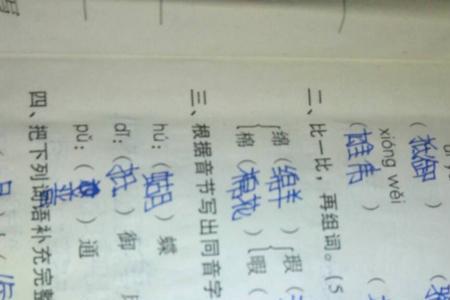 (抵御)
xióng wěi
(雄伟)
二、比一比，再组词。(5
绵(绵羊) 瑕(
棉(棉花) 暇(
三、根据音节写出同音字
hú：(蝴)蝶
dǐ：(抵)御
pǔ：( )通
四、把下列词语补充完整